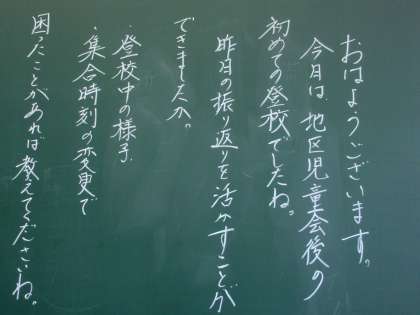 おはようございます。
今月は、地区児童会後の
初めての登校でしたね。
昨月の振り返りを活かすことが
できましたか。
・登校中の様子
・集合時刻の変更で
困ったことがあれば教えてくださいね。